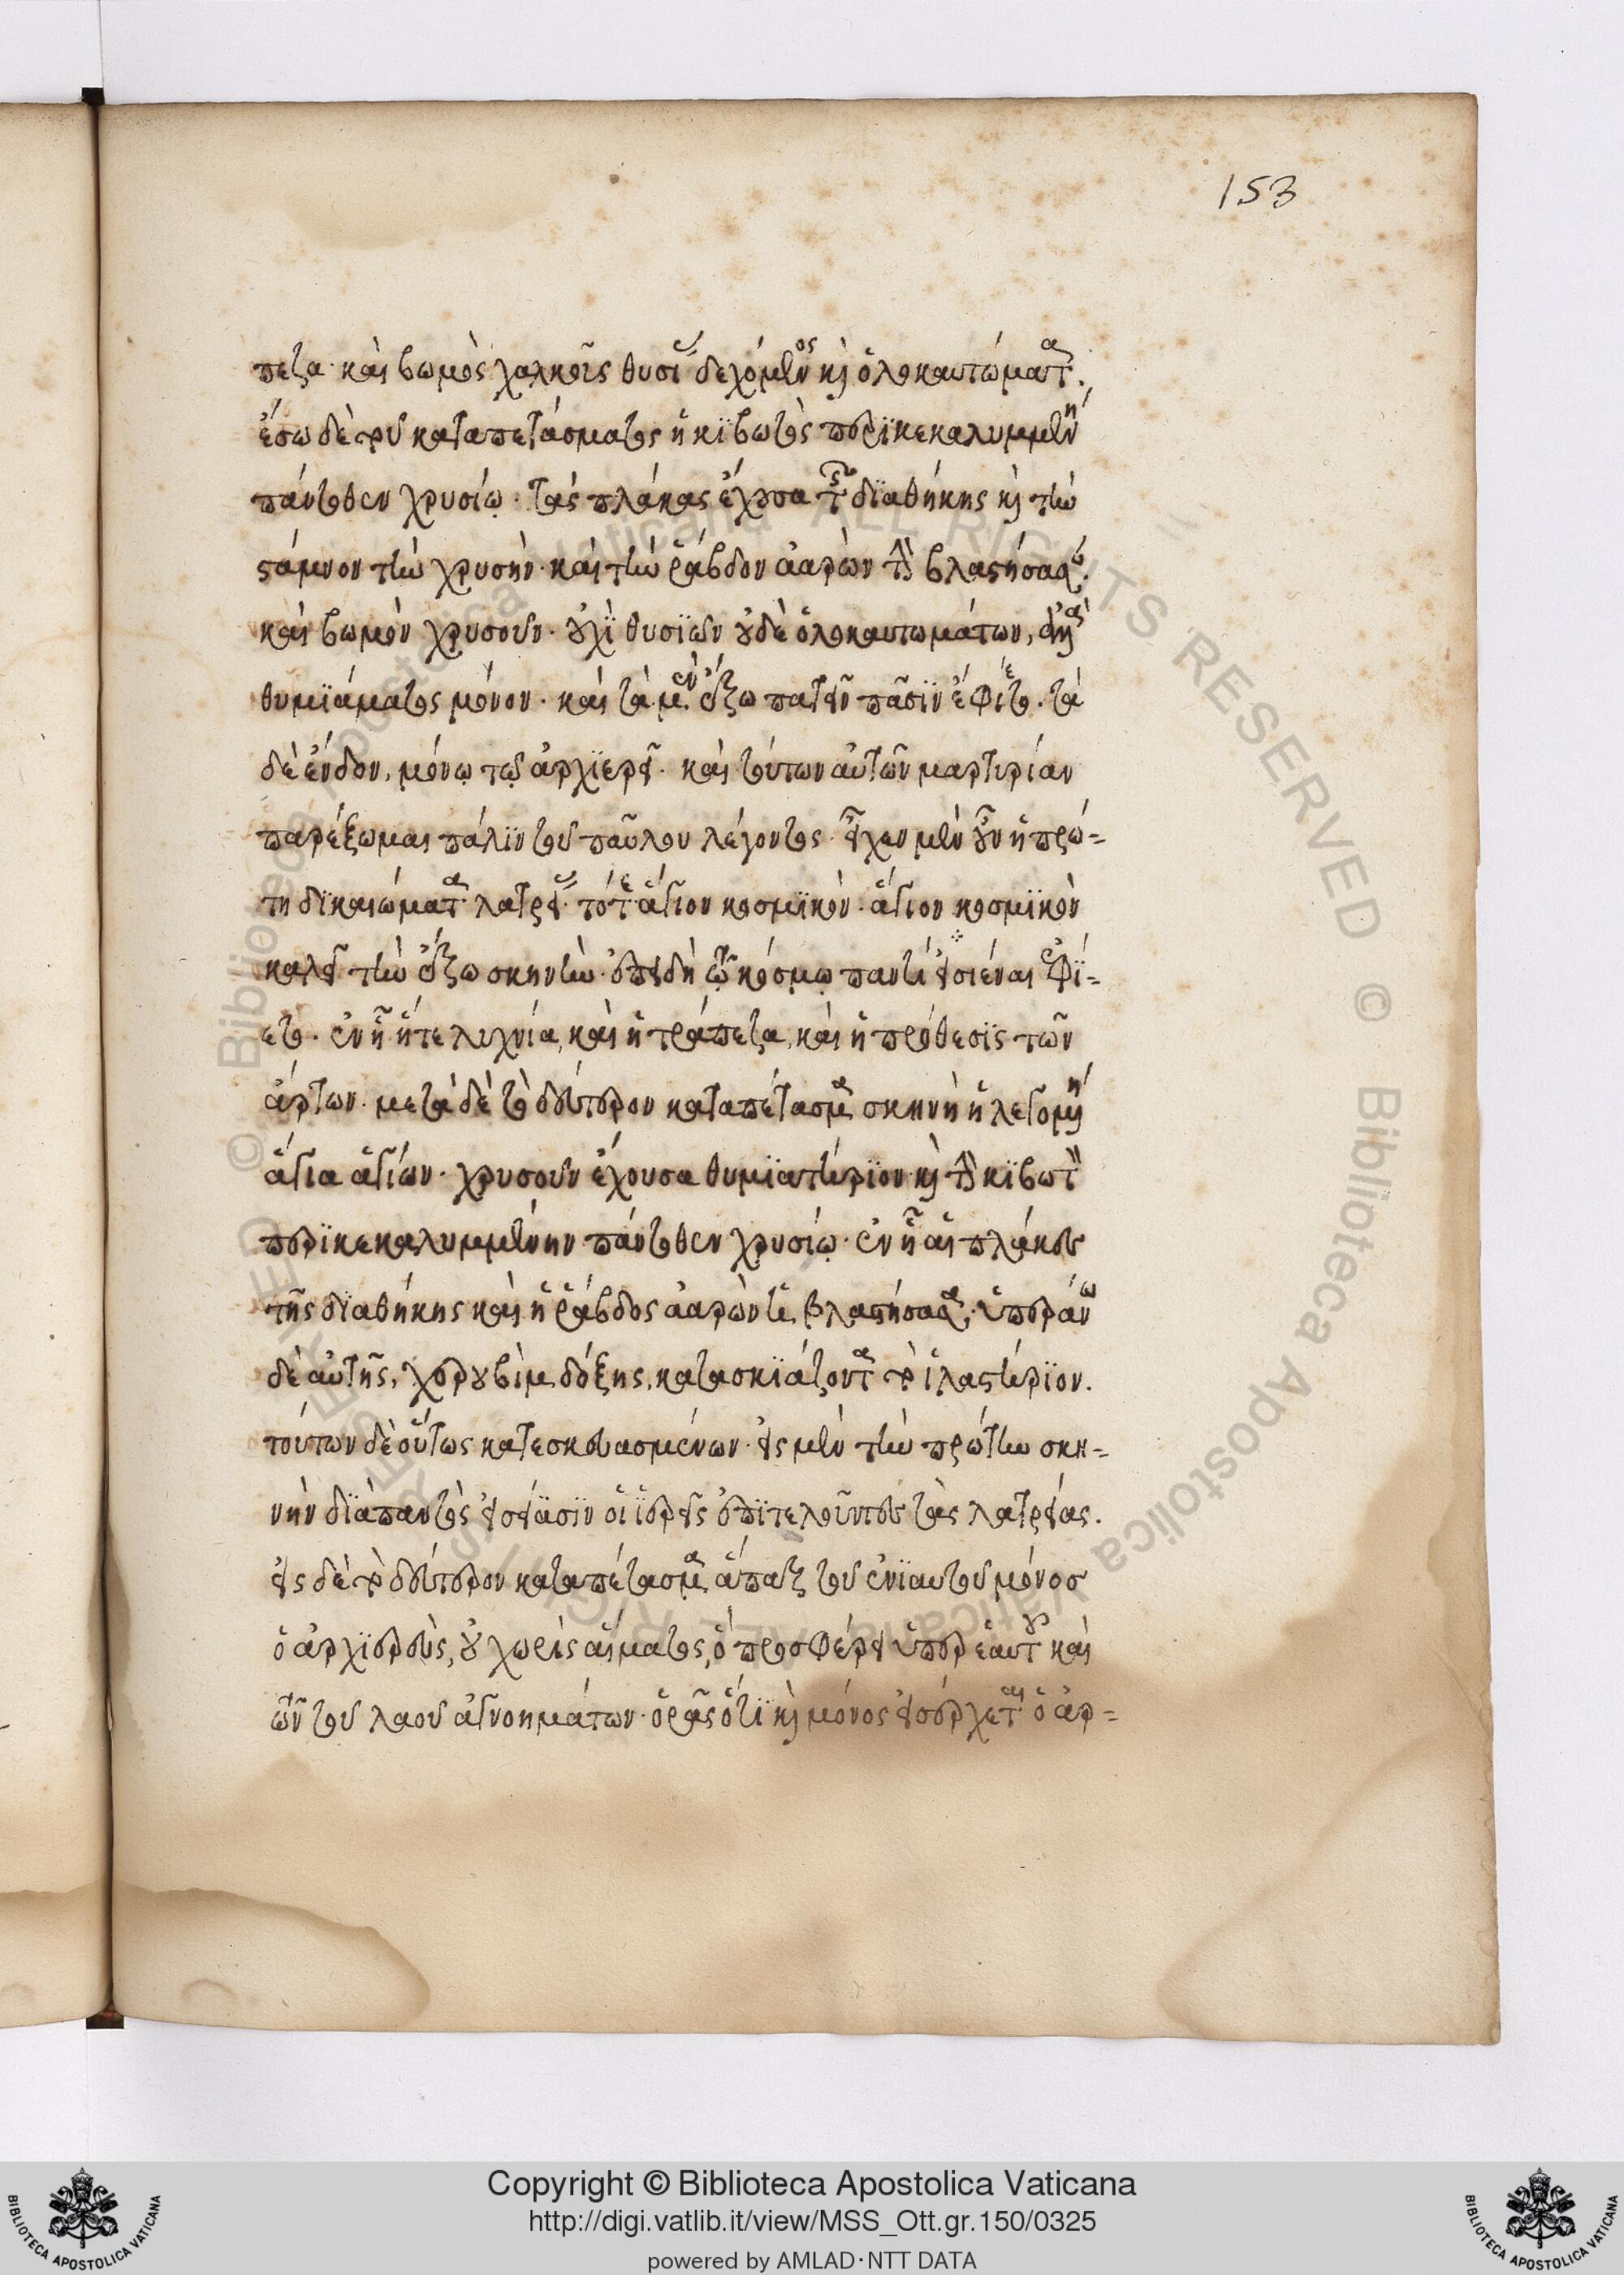 153
πεζα· καὶ βωμὸς χαλκοῦς θυσίας δεχόμενος κὶ ὁλοκαυτώματα.
ἔσω δὲ τοῦ καταπετάσματος ἡ κϊβωτὸς περϊκεκαλυμμένη
πάντοθεν χρυσίῳ· τὰς πλάκας ἔχουσα τῆς δϊαθήκης κὶ τὴν
στάμνον τὴν χρυσὴν· καὶ τὴν ῥάβδον ἀαρὼν τὴν βλαστήσασαν·
καὶ βωμὸν χρυσοῦν· οὐχὶ θυσϊῶν οὐδὲ ὁλοκαυτωμάτων, ἀλλὰ
θυμϊάματος μόνον· καὶ τὰ μὲν ἔξω πατεῖν πᾶσϊν ἐφίετο· τὰ
δὲ ἔνδον, μόνῳ τῷ ἀρχϊερεῖ· καὶ τούτων αὐτῶν μαρτυρίαν
παρέξωμαι πάλϊν τοῦ παῦλου λέγοντος· εἶχεν μὲν οὖν ἡ πρώ-
τη δϊκαιώματα λατρείας· τό τε ἅγιον κοσμϊκὸν· ἅγιον κοσμϊκὸν
καλεῖ τὴν ἔξω σκηνὴν· ἐπειδὴ τῷ κόσμῳ παντὶ εἰσιέναι ἐφϊ-
ετο· ἐν ᾗ ἥ τε λυχνία, καὶ ἡ τράπεζα, καὶ ἡ πρόθεσϊς τῶν
ἄρτων· μετὰ δὲ τὸ δεύτερον καταπέτασμα σκηνὴ ἡ λεγομένη
ἅγια ἁγίων· χρυσοῦν ἔχουσα θυμϊατήρϊον κὶ τὴν κϊβωτὸν
περϊκεκαλυμμένην πάντοθεν χρυσίῳ· ἐν ᾗ αἱ πλάκες
τῆς δϊαθήκης καὶ ἡ ῥάβδος ἀαρὼν ἡ βλαστήσασα· ὑπεράνω
δὲ αὐτῆς, χερουβὶμ δόξης, κατασκϊάζοντα τὸ ἱλαστήρϊον.
τούτων δὲ οὕτως κατεσκευασμένων· εἰς μὲν τὴν πρώτην σκη-
νὴν δϊαπαντὸς εἰσΐασϊν οἱ ἱερεῖς ἐπϊτελοῦντες τὰς λατρείας.
εἰς δὲ τὸ δεύτερον καταπέτασμα ἅπαξ τοῦ ἐνϊαυτοῦ μόνος
ὁ ἀρχϊερεὺς, οὐ χωρὶς αἵματος, ὃ προσφέρει ὑπὲρ ἑαυτοῦ καὶ
τῶν τοῦ λαοῦ ἀγνοημάτων· ὁρᾷς ὅτϊ κὶ μόνος εἰσέρχεται ὁ ἀρ-
Copyright © Biblioteca Apostolica Vaticana
http://digi.vatlib.it/view/MSS_Ott.gr.150/0325
powered by AMLAD·NTT DATA
BIBLIOTECA APOSTOLICA VATICANA
BIBLIOTECA APOSTOLICA VATICANA